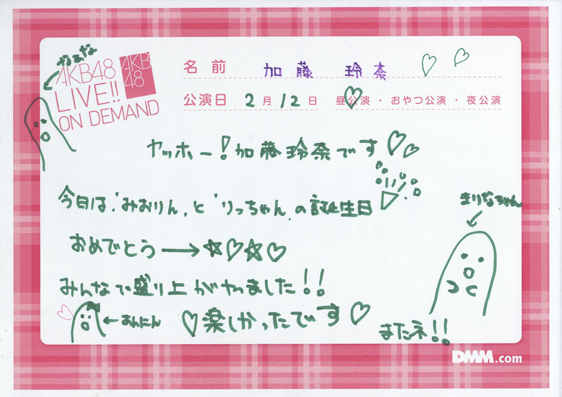 かぁなな
AKB48
LIVE!!
ON DEMAND
AKB
48
名前 加藤 玲奈♡♡
公演日 2月12日 昼公演・おやつ公演・夜公演
ヤッホー!加藤玲奈です♡♡
今日は"みおりん"と"りっちゃん"の誕生日
おめでとう→☆♡☆♡
まりなちゃん
みんなで盛り上がりました!!
←あんにん
♡楽しかったです♡
またネ!!
DMM.com